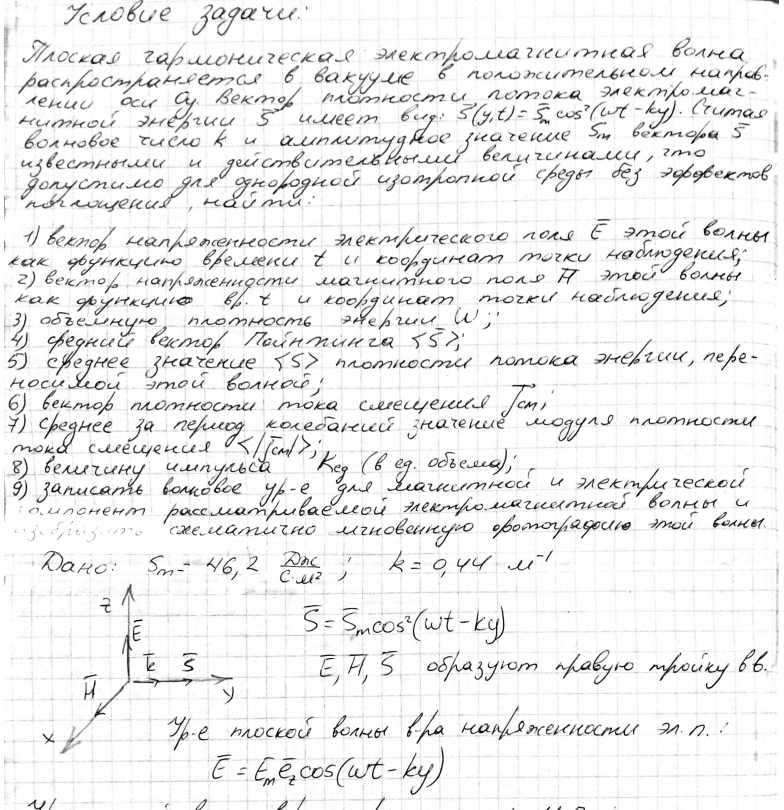 Условие задачи:
Плоская гармоническая электромагнитная волна
распространяется в вакууме в положительном направ-
лении оси Oy. Вектор плотности потока электромаг-
нитной энергии S̄ имеет вид: S̄(y,t) = S̄m cos²(ωt - ky). Считая
волновое число k и амплитудное значение Sm вектора S̄
известными и действительными величинами, что
допустимо для однородной изотропной среды без эффектов
поглощения, найти:
1) вектор напряженности электрического поля Ē этой волны
как функцию времени t и координат точки наблюдения;
2) вектор напряженности магнитного поля H̄ этой волны
как функцию вр. t и координат точки наблюдения;
3) объемную плотность энергии W;
4) средний вектор Пойнтинга <S̄>;
5) среднее значение <S> плотности потока энергии, пере-
носимой этой волной;
6) вектор плотности тока смещения j̄см;
7) среднее за период колебаний значение модуля плотности
тока смещения <|j̄см|>;
8) величину импульса Kед (в ед. объема);
9) записать волновое ур-е для магнитной и электрической
компонент рассматриваемой электромагнитной волны и
изобразить схематично мгновенную фотографию этой волны.
Дано: Sm = 46,2 Дж/с·м² ; k = 0,44 м⁻¹
z
Ē
S̄ = S̄m cos²(ωt - ky)
H̄ k̄ S̄ y
Ē, H̄, S̄ образуют правую тройку вв.
x
Ур-е плоской волны в-ра напряженности эл.п.:
Ē = Ēm ēz cos(ωt - ky)